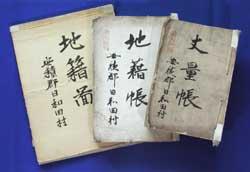 丈量帳
安積郡日和田村
地籍帳
安積郡日和田村
地籍圖
安積郡日和田村